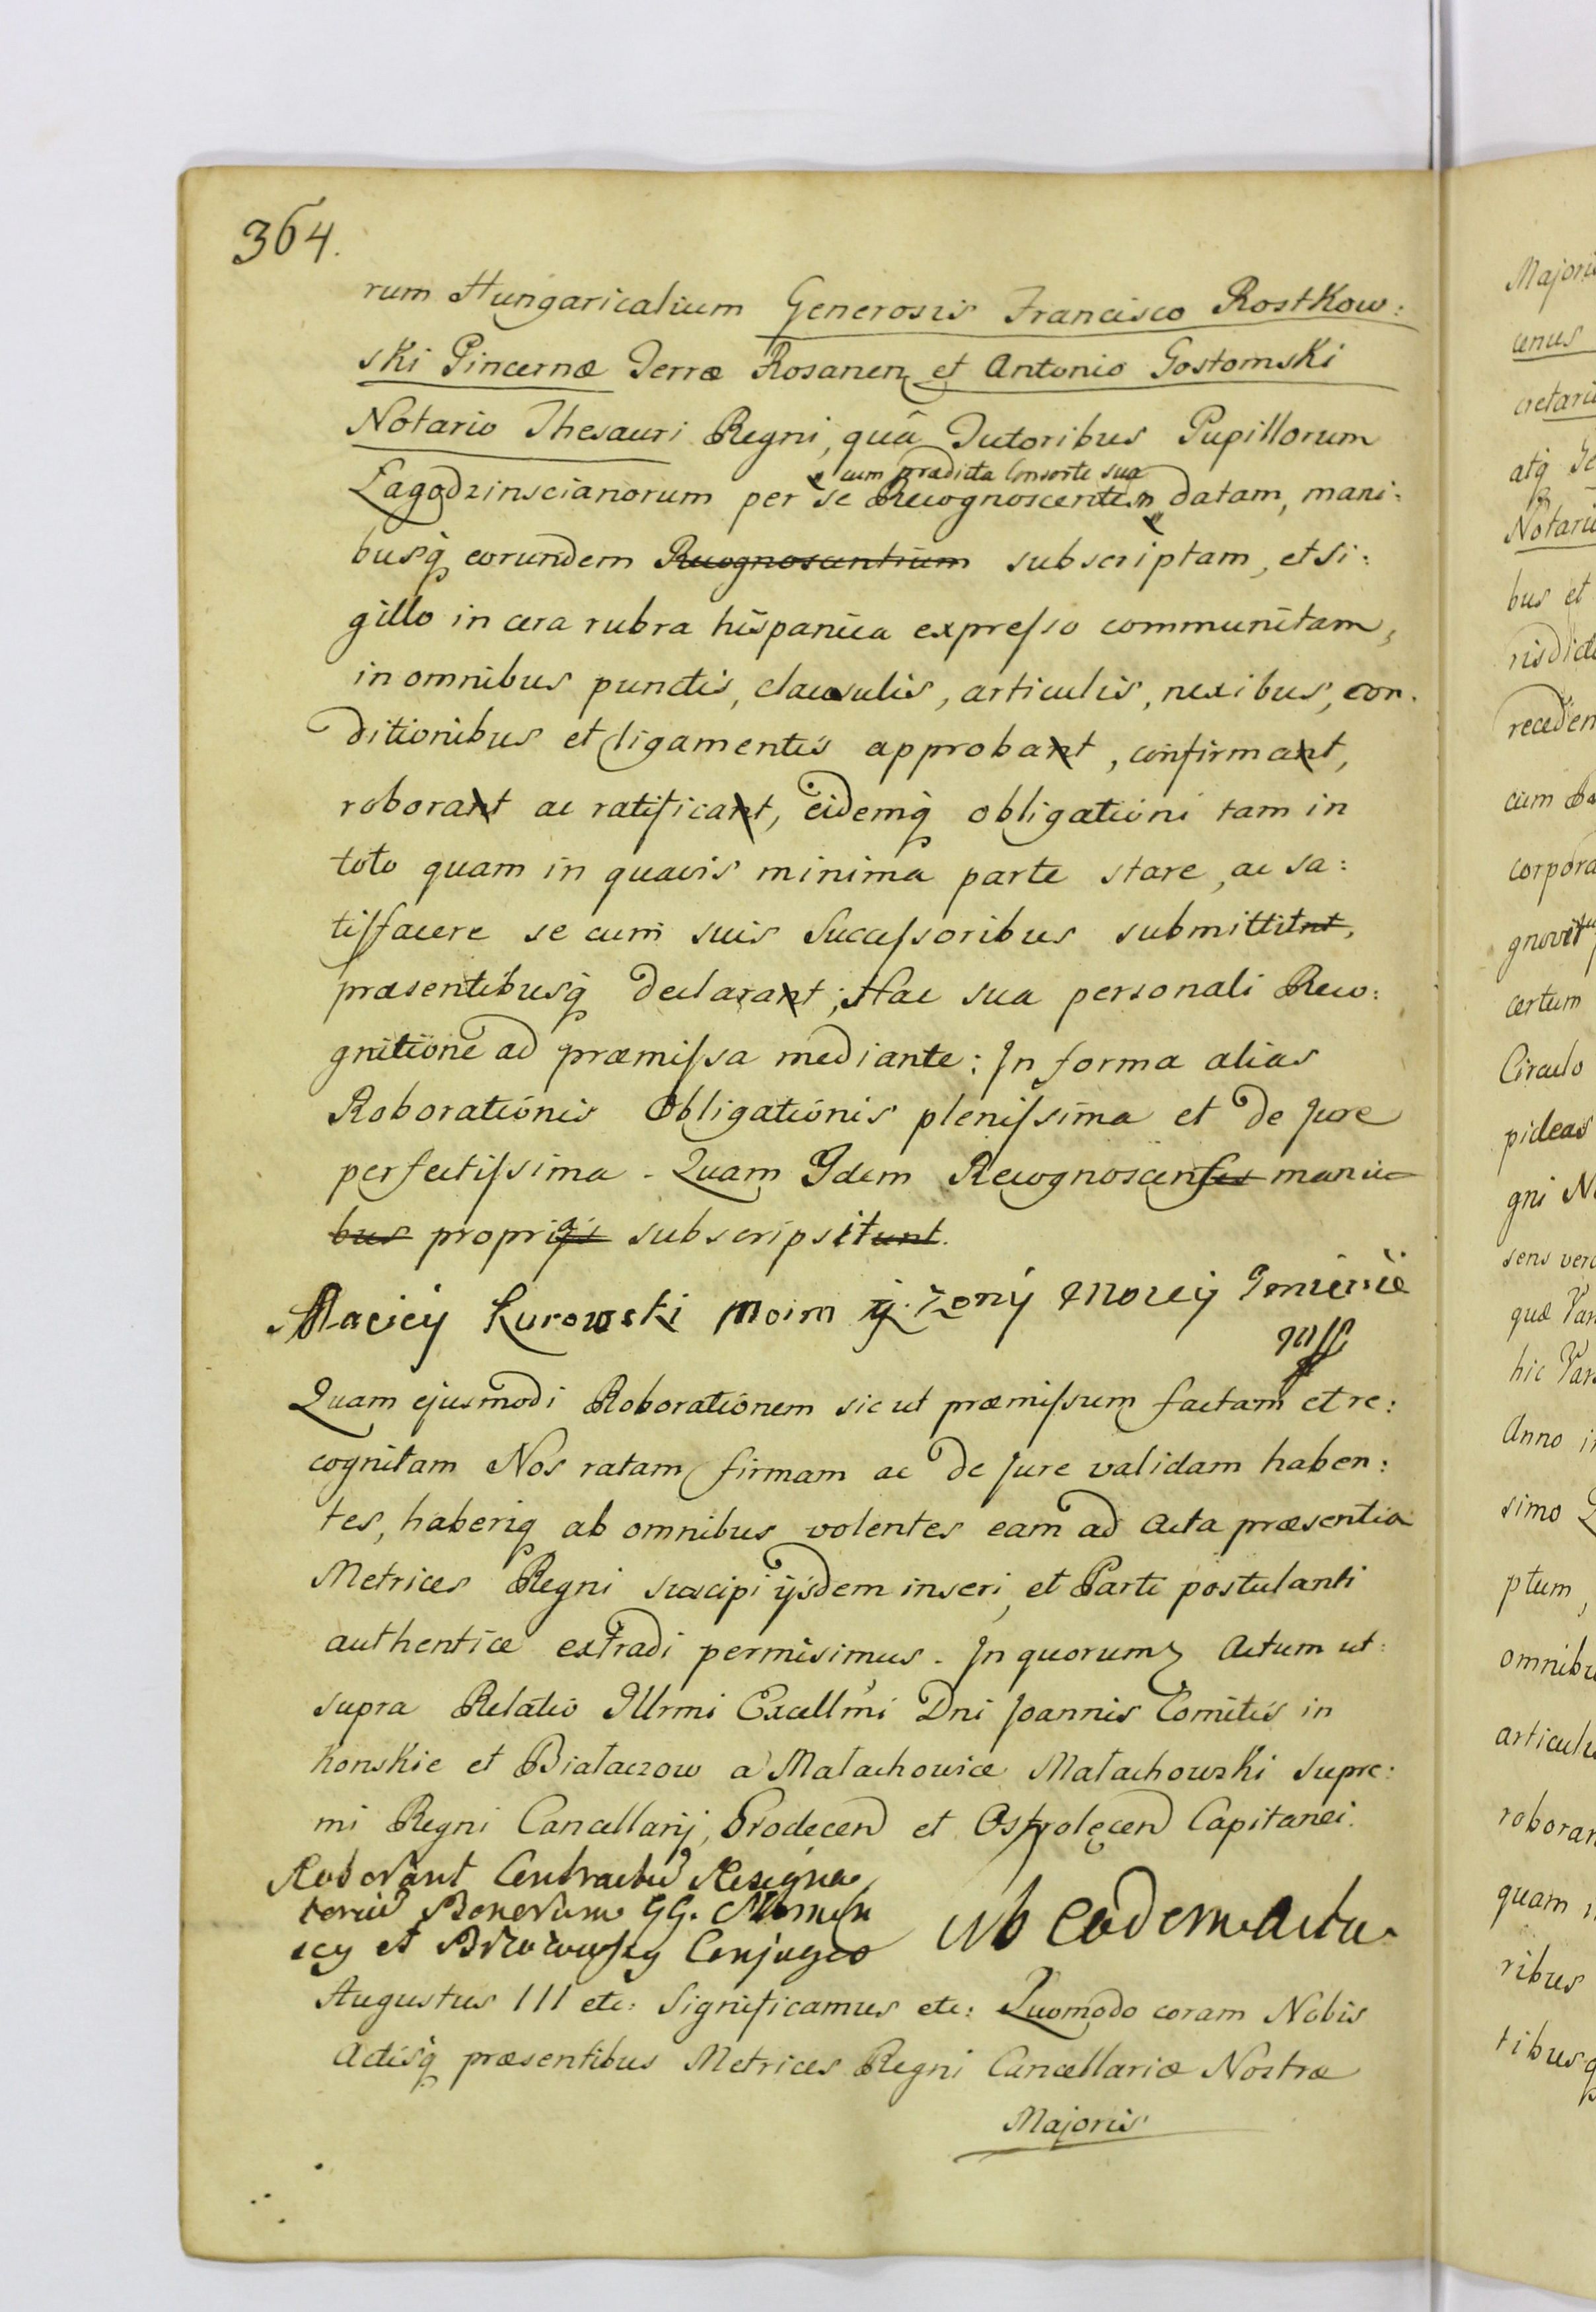 364.
rum Hungaricalium Generosis Francisco Rostkow:
ski Pincernæ Terræ Rosanen et Antonio Gostomski
Notario Thesauri Regni, quâ Tutoribus Pupillorum
cum prædicta Consorte sua
Łagodzinscianorum per se Recognoscentem datam, mani:
busq̃ eorundem Recognoscentium subscriptam, et si:
gillo in cera rubra hispanica expresso communitam,
in omnibus punctis, clausulis, articulis, nexibus, con:
ditionibus et ligamentis approbant, confirmant,
roborant ac ratificant, eidemq̃ obligationi tam in
toto quam in quavis minima parte stare, ac sa:
tisfacere se cum suis Successoribus submittitnt,
præsentibusq̃ declarant; Hac sua personali Reco:
gnitione ad præmissa mediante: In forma alias
Roborationis Obligationis plenissima et de Jure
perfectissima. Quam Idem Recognoscens manu
bus propriis subscripsitunt.
Maciey Kurowski Moim ÿ Żony Moiey Imieniē
mpp
Quam ejusmodi Roborationem sic ut præmissum factam et re:
cognitam Nos ratam firmam ac de Jure validam haben:
tes, haberiq̃ ab omnibus volentes eam ad Acta præsentia
Metrices Regni suscipi ijsdem inseri, et Parti postulanti
authentice extradi permisimus. In quorum Actum ut
supra Relatio Illrmi Excellmi Dni Joannis Comitis in
Konskie et Białaczow a Małachowice Małachowski Supre:
mi Regni Cancellarij, Grodecen et Ostrolęcen Capitanei.
Roborant Contractũ Resigna
toriũ Bonorum GG.
et Conjuges
Ub Eodem Actu
Augustus III etc: Significamus etc: Quomodo coram Nobis
Actisq̃ præsentibus Metrices Regni Cancellariæ Nostræ
Majoris
Majoris
cretari
atq̃ Ge
Notari
bus et
risdict
receden
cum
corpora
gnovit
certum
Circulo
pideas
gni N
sens ver
quæ Var
hic Var
Anno i
simo
ptum,
omnibu
articuli
roboran
quam
ribus
tibusq